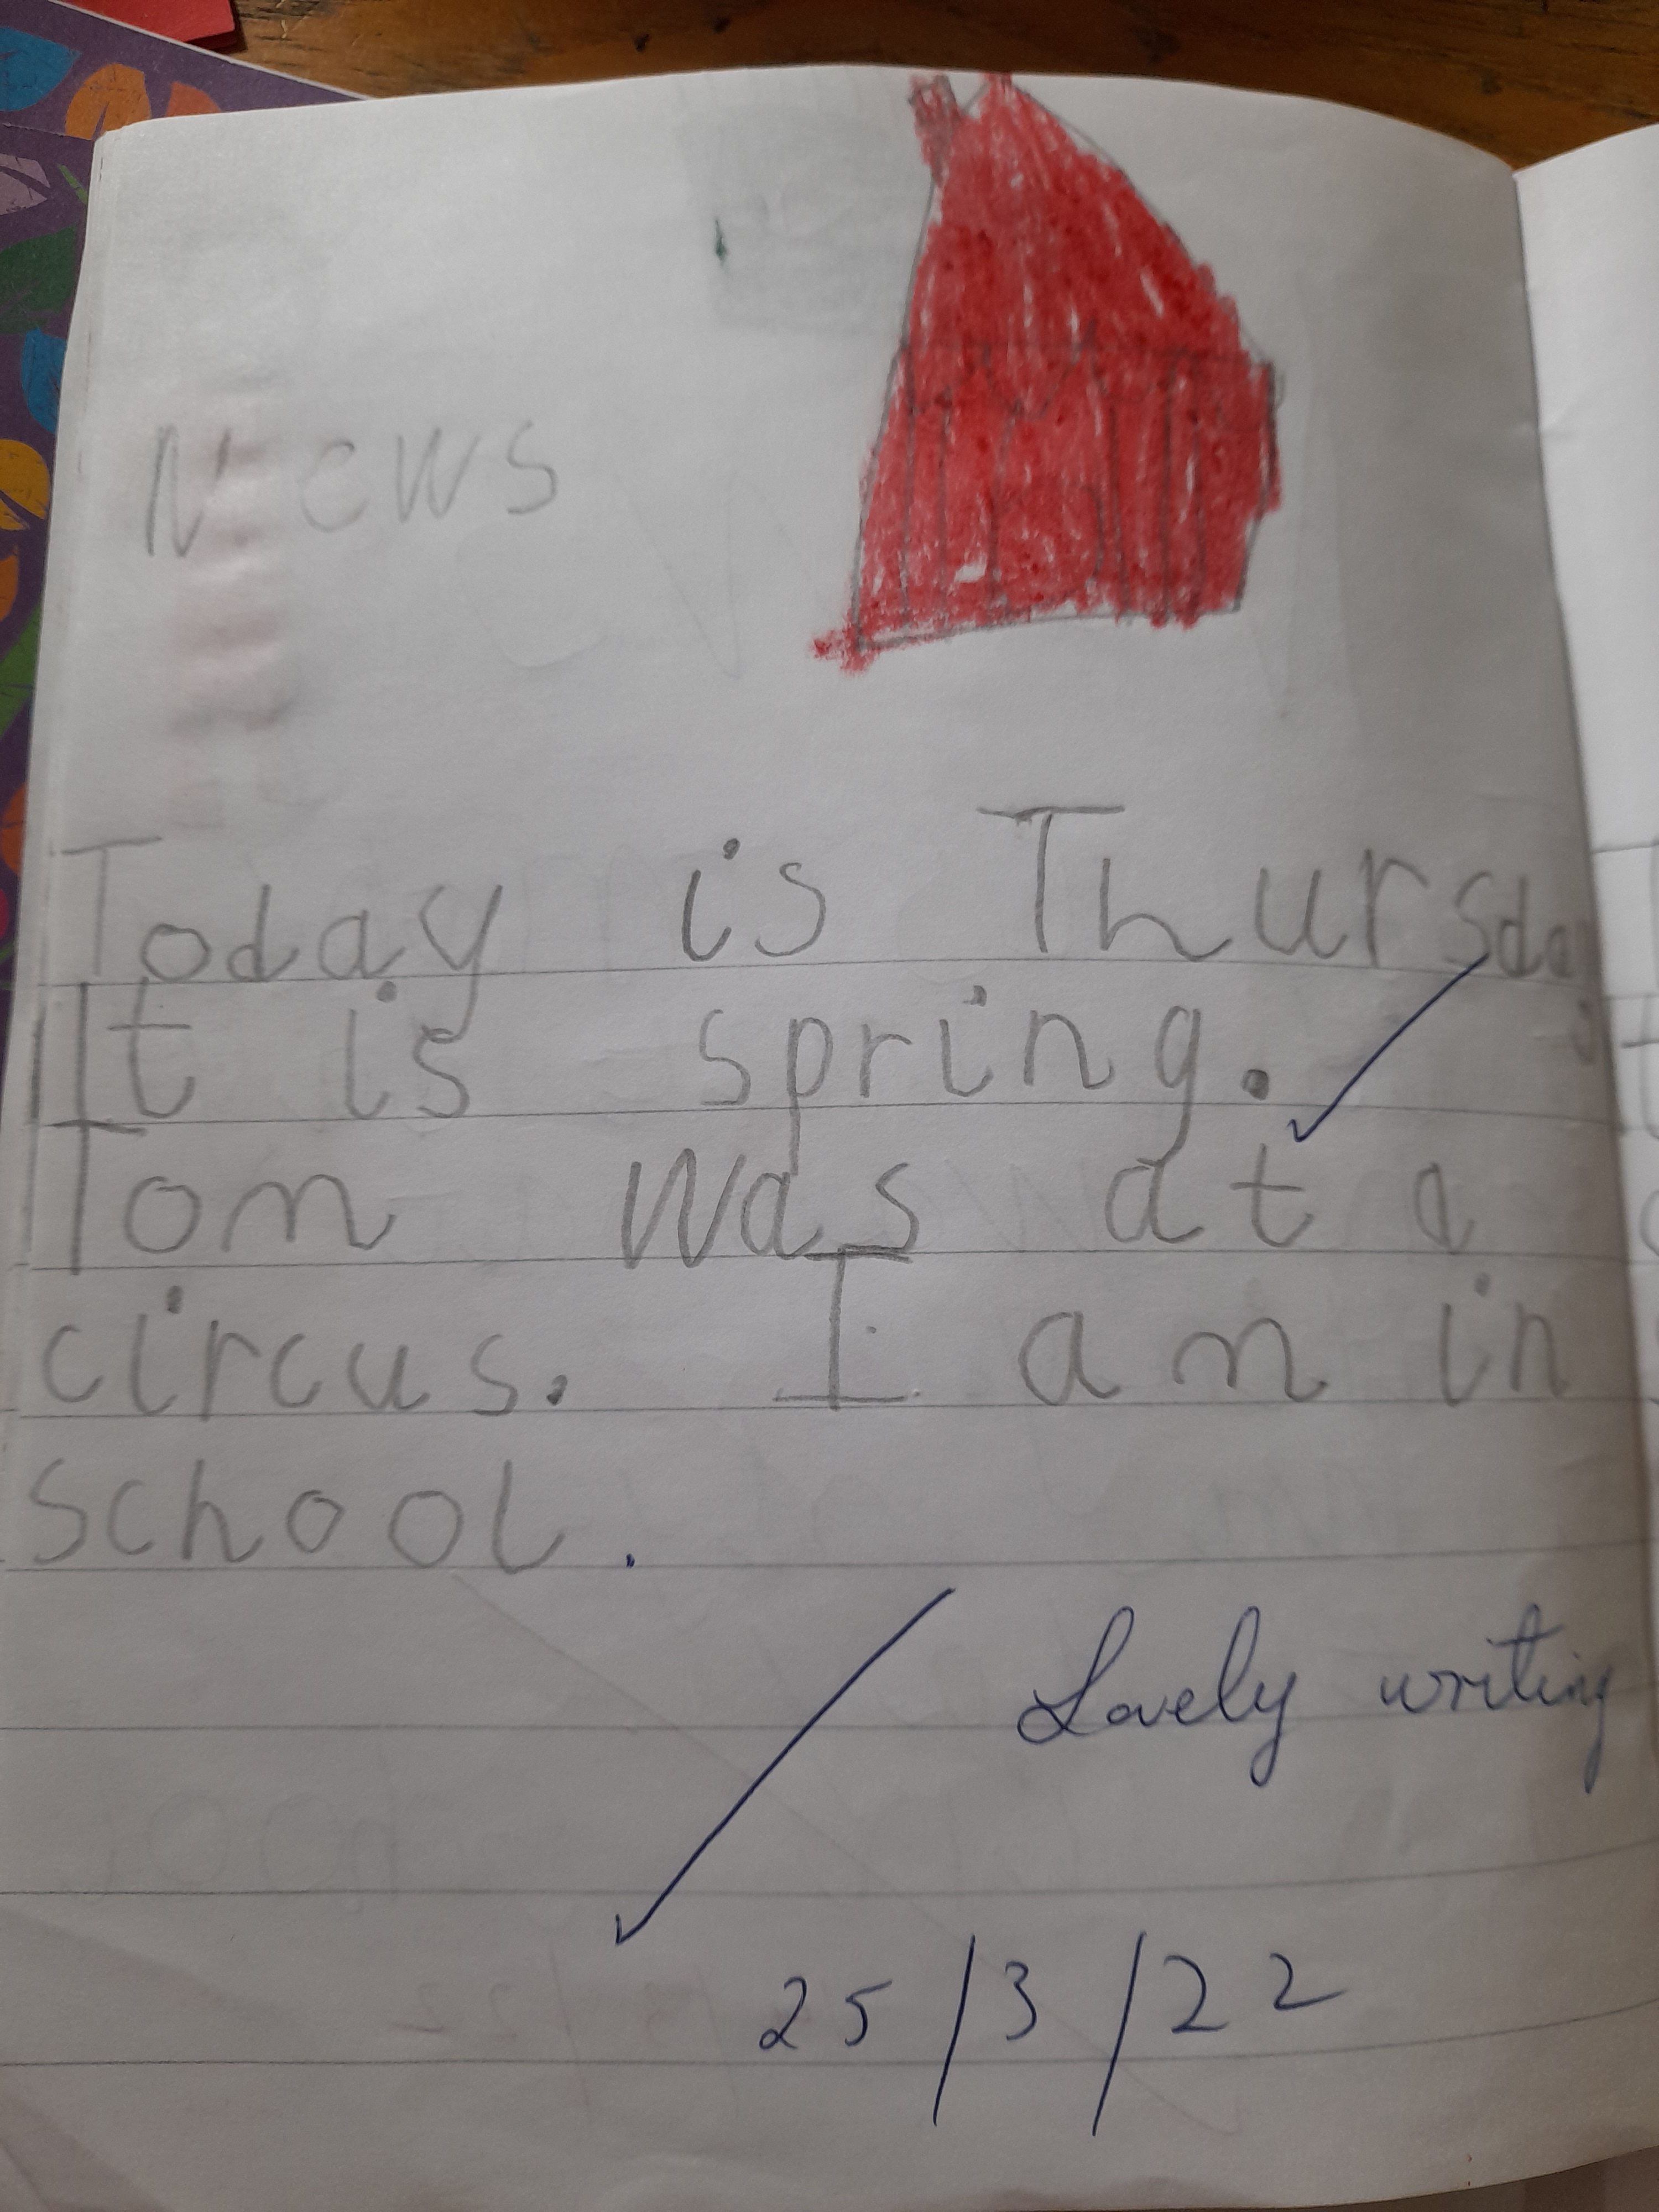 News
Today is Thursday
It is spring.
Tom was at a
circus. I am in
school.
Lovely writing
25/3/22